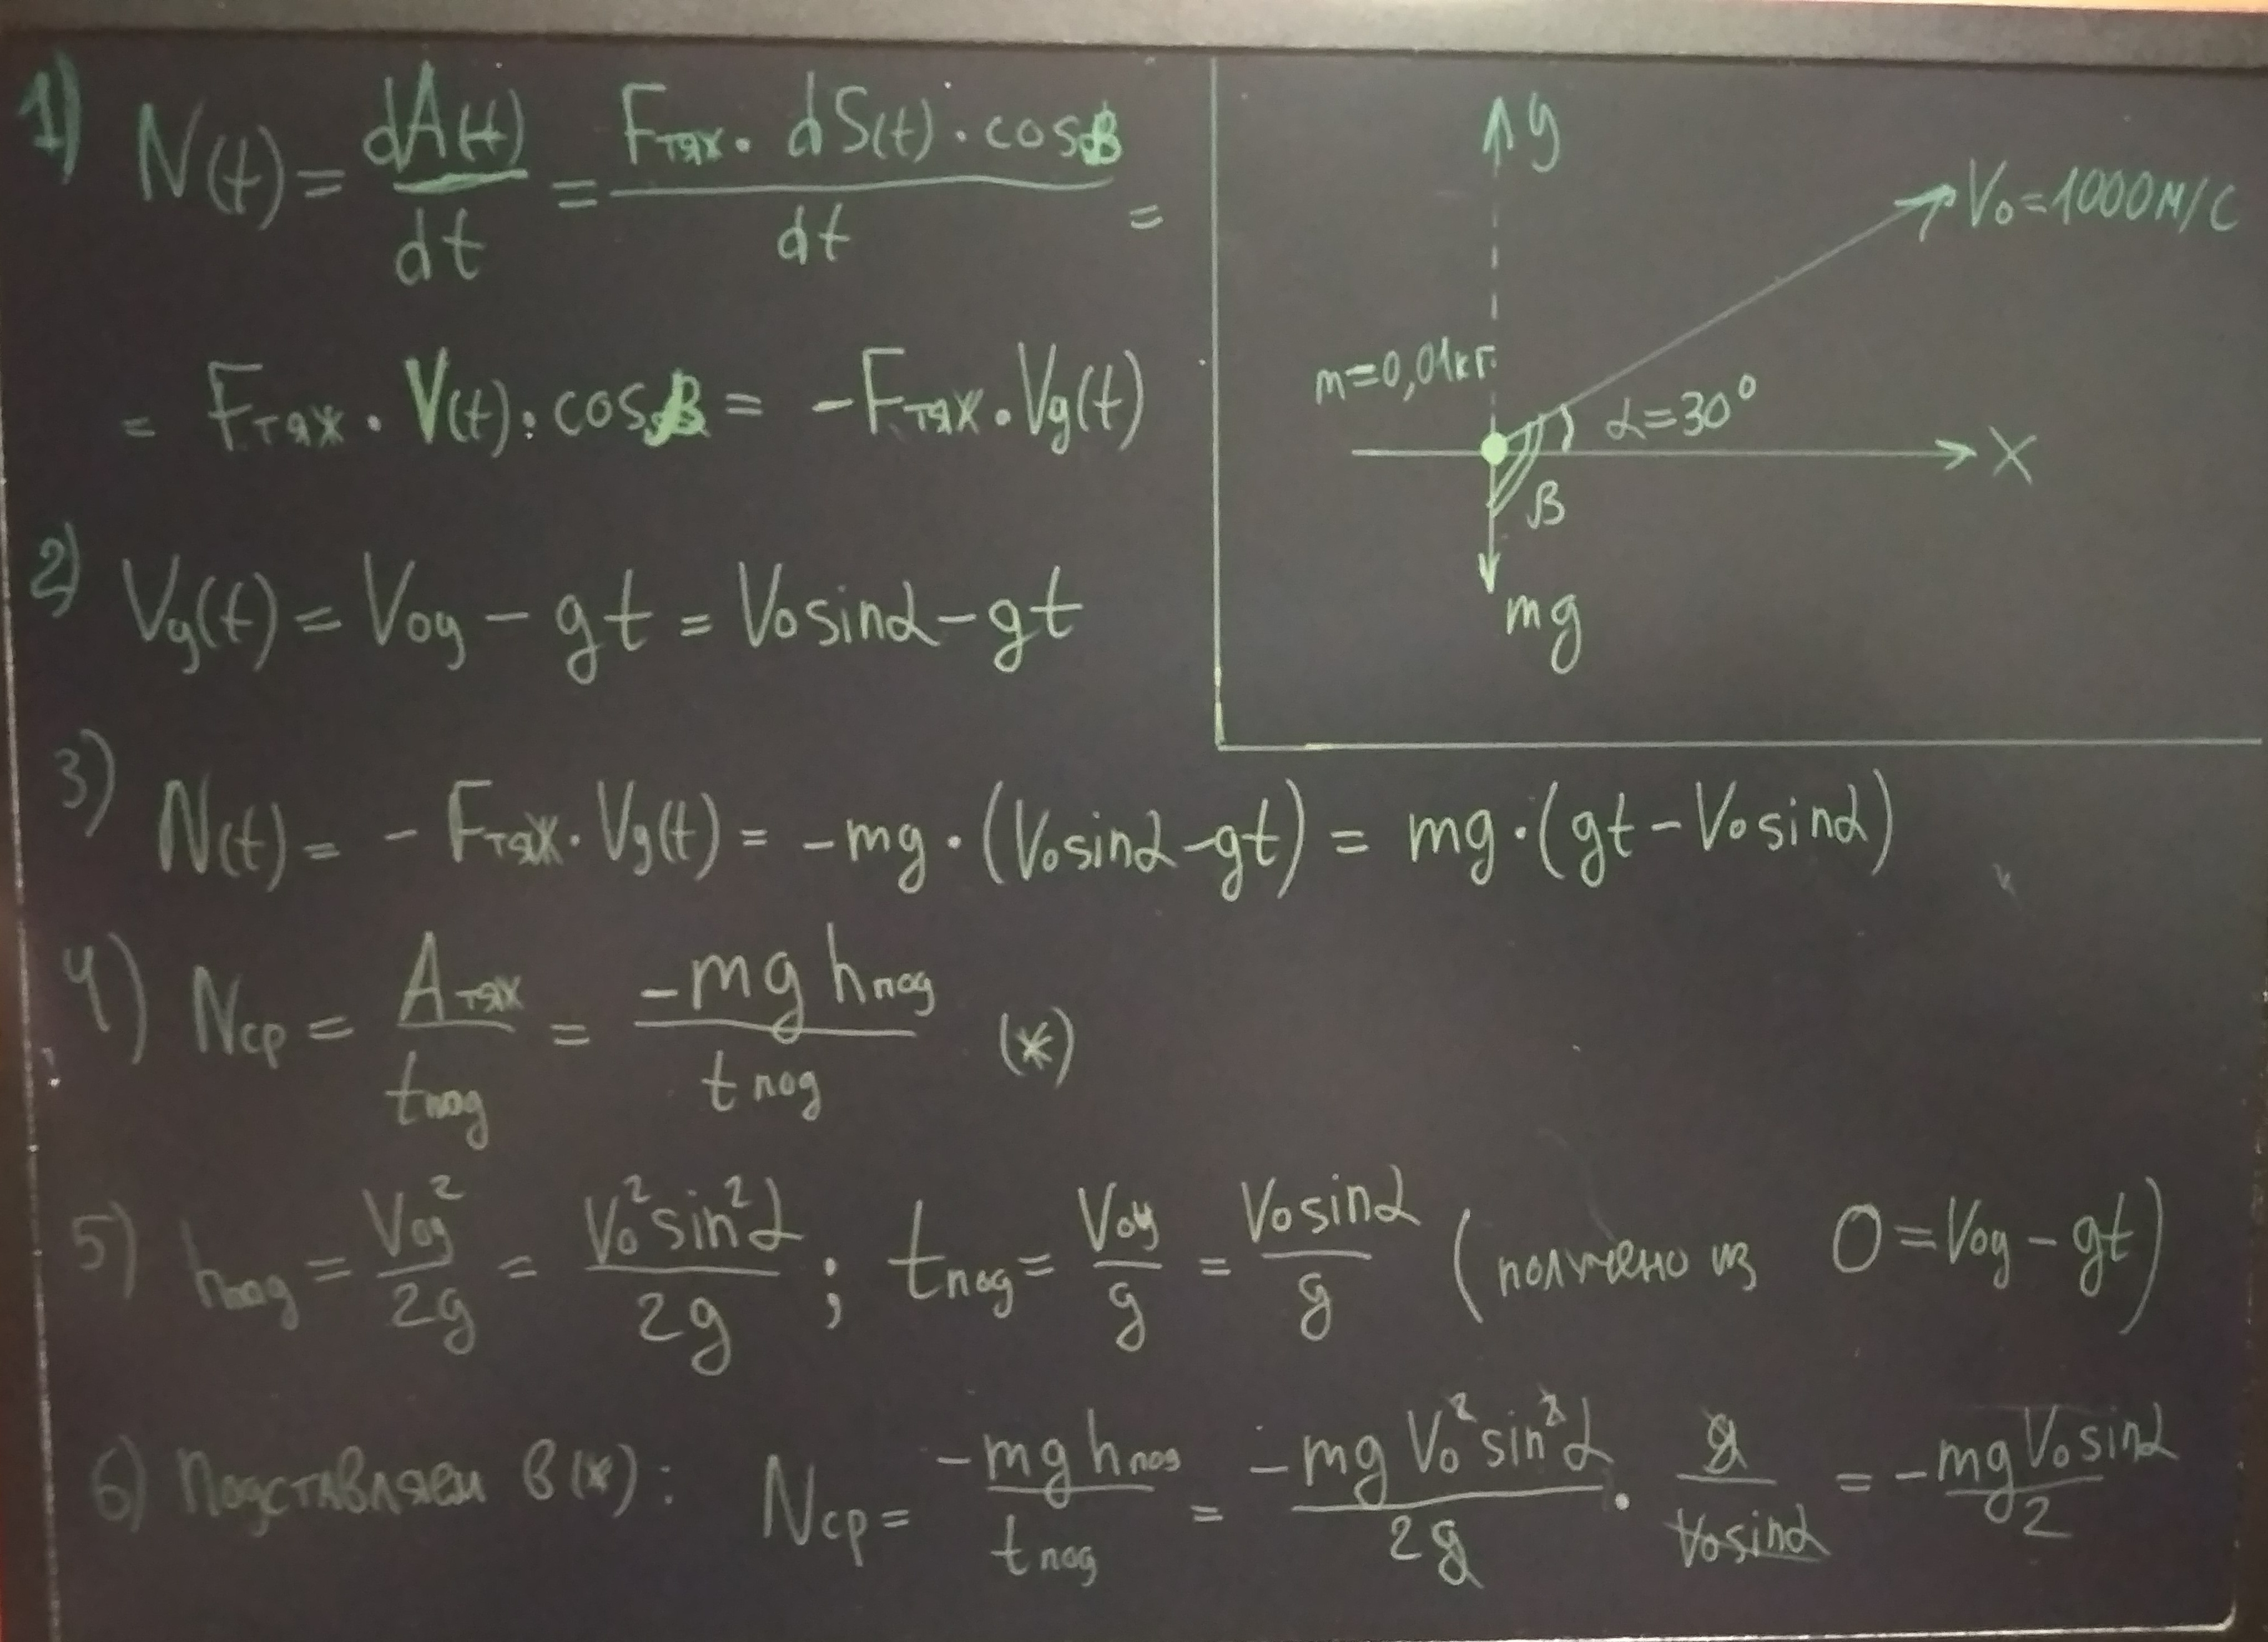 1) N(t) = dA(t)/dt = Fтяж · dS(t) · cosβ / dt =
= Fтяж · V(t) · cosβ = -Fтяж · Vy(t)
y
V0=1000м/с
m=0,01кг
α=30°
X
β
mg
2) Vy(t) = V0y - gt = V0sinα - gt
3) N(t) = - Fтяж · Vy(t) = -mg · (V0sinα - gt) = mg · (gt - V0sinα)
4) Nср = Aтяж/tпод = -mg hпод/tпод (*)
5) hпод = V0y²/2g = V0²sin²α/2g ; tпод = V0y/g = V0sinα/g (получено из 0 = V0y - gt)
6) Подставляем в (*): Nср = -mg hпод/tпод = -mg V0²sin²α/2g · g/V0sinα = -mg V0sinα/2